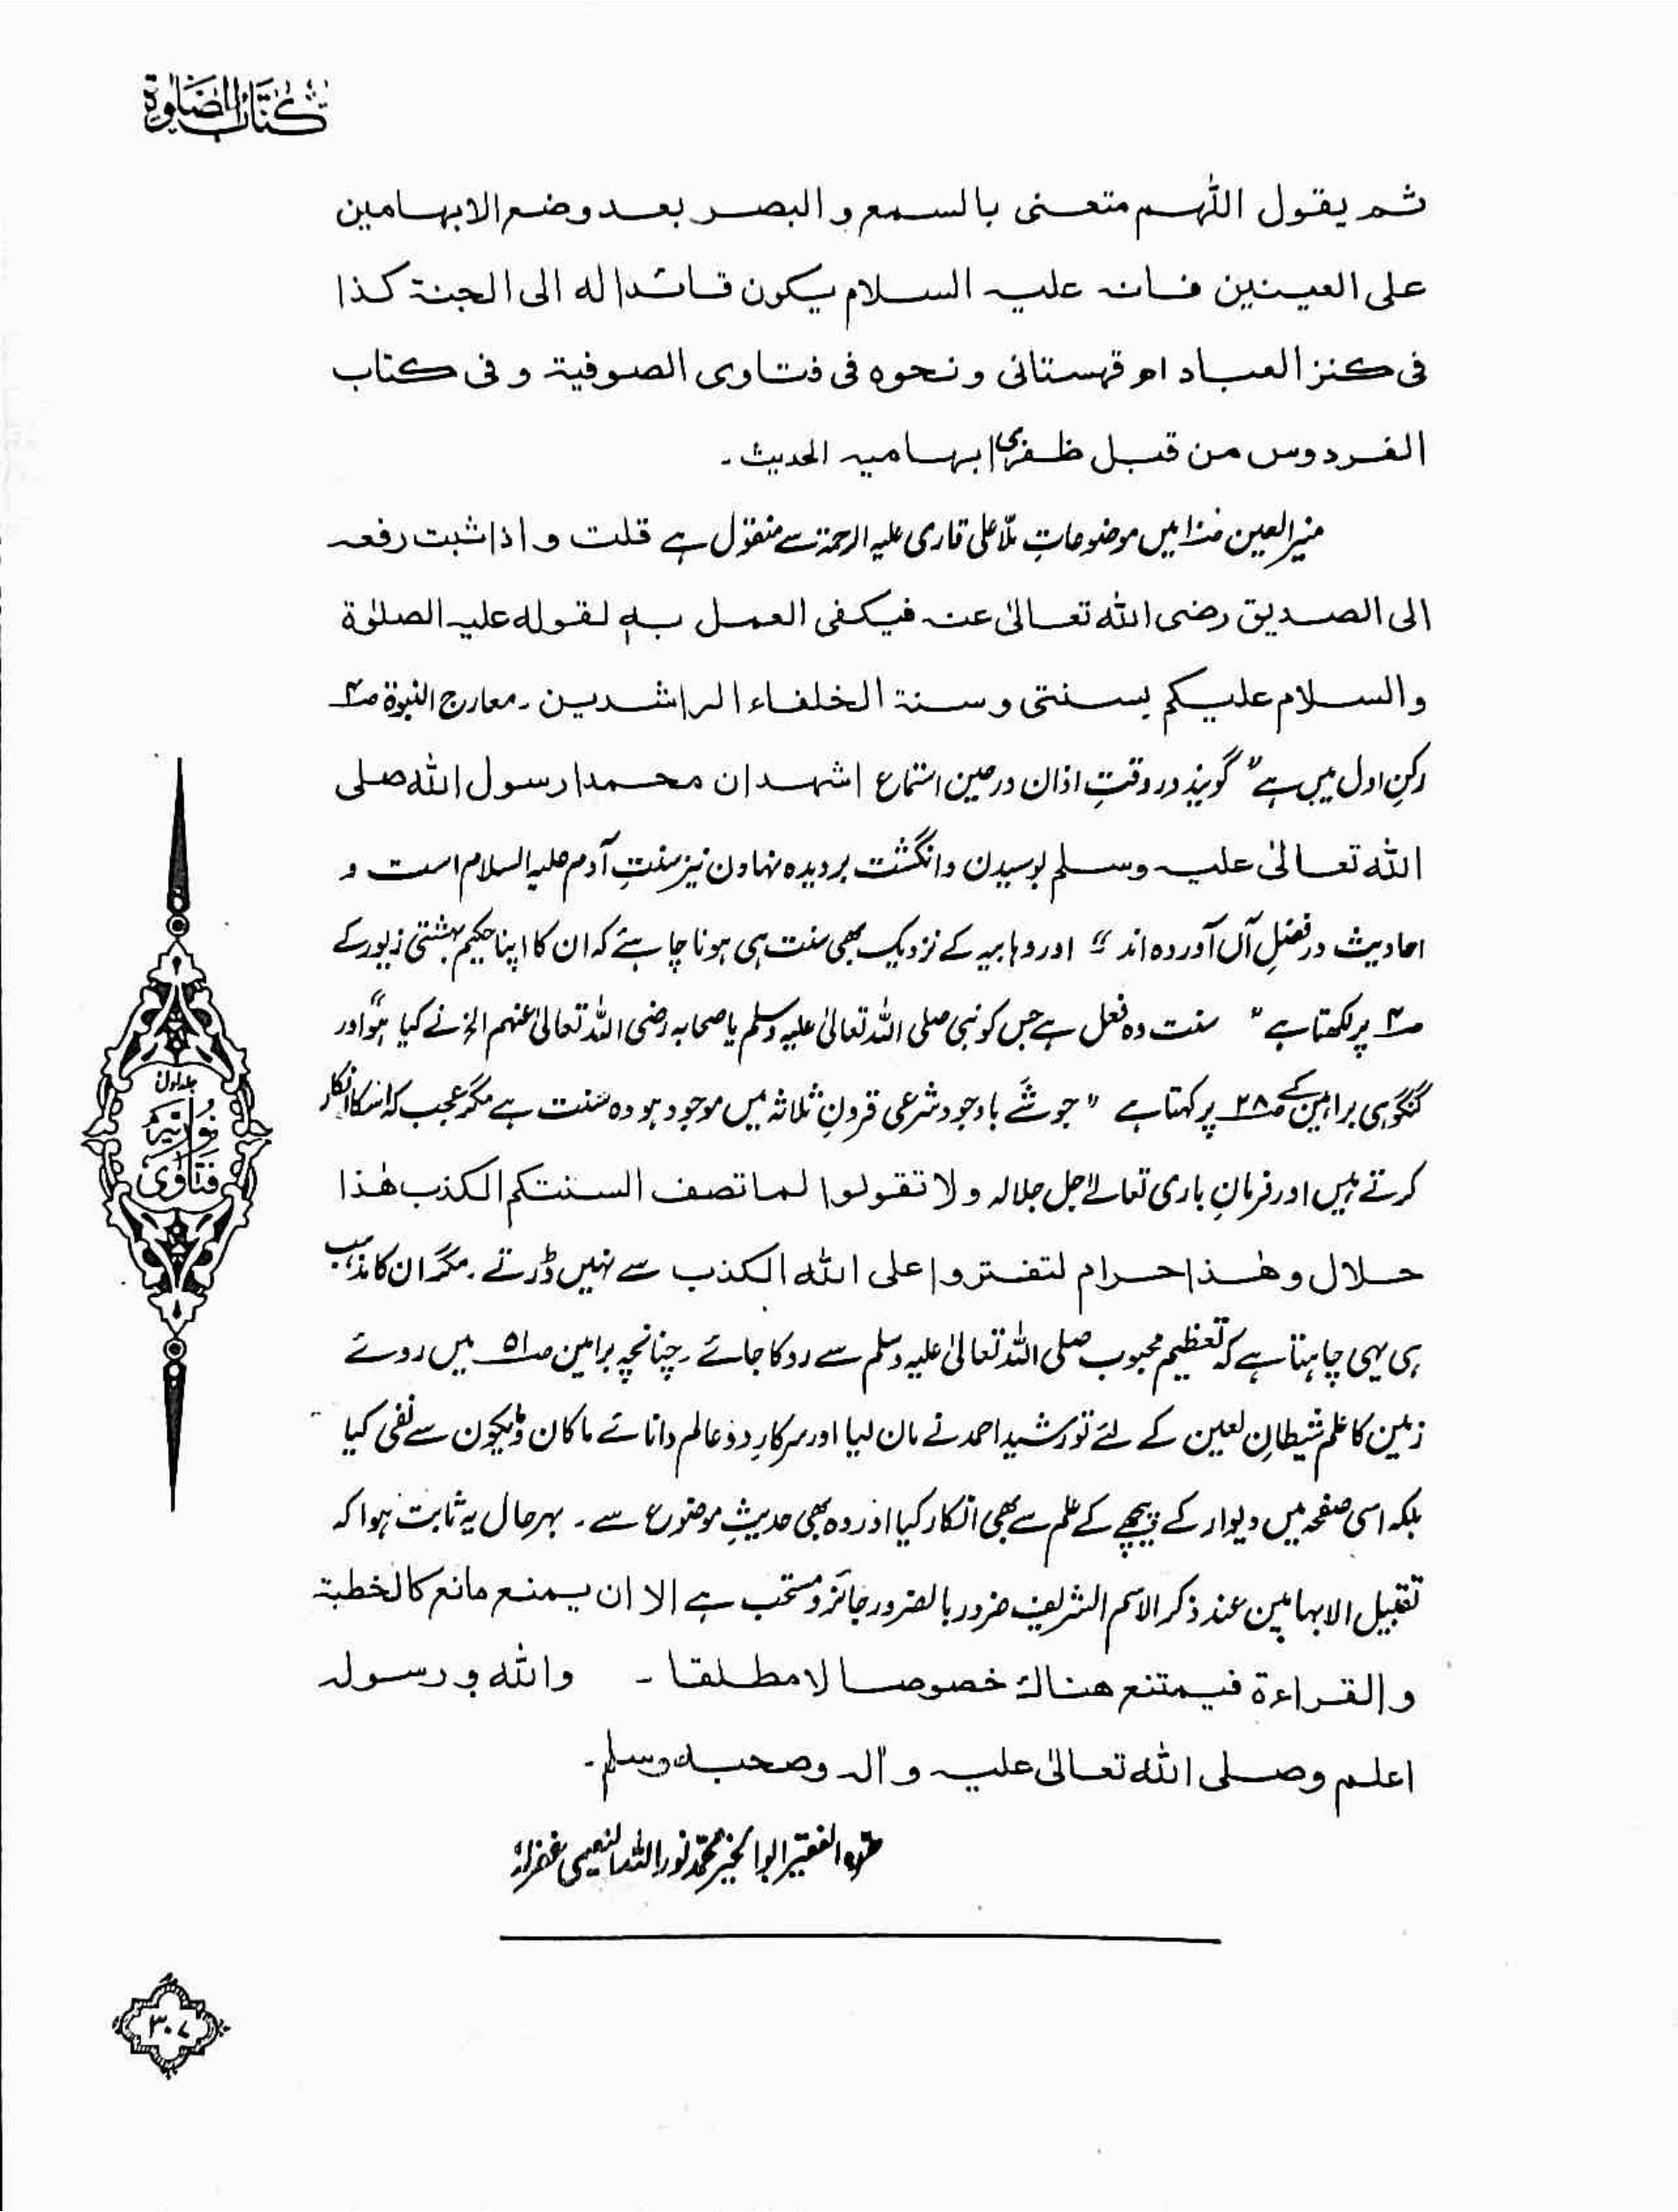 کتاب الصلوٰۃ
ثم یقول اللّٰہم متعنی بالسمع و البصر بعد وضع الابہامین
علی العینین فانہ علیہ السلام یکون قائدا لہ الی الجنۃ کذا
فی کنز العباد اھ قہستانی و نحوہ فی فتاوی الصوفیۃ و فی کتاب
الفردوس من قبل ظفری ابہامیہ الحدیث۔
منیر العین صذا میں موضوعاتِ ملّا علی قاری علیہ الرحمۃ سے منقول ہے قلت و اذا ثبت رفعہ
الی الصدیق رضی اللہ تعالیٰ عنہ فیکفی العمل بہٖ لقولہ علیہ الصلوٰۃ
والسلام علیکم بسنتی و سنۃ الخلفاء الراشدین۔ معارج النبوۃ صـ۴
رکنِ اول میں ہے "گویند در وقتِ اذان در حین استماع اشہد ان محمدا رسول اللہ صلی
اللہ تعالیٰ علیہ وسلم بوسیدن و انگشت بر دیدہ نہادن نیز سنتِ آدم علیہ السلام است و
احادیث در فضلِ آں آوردہ اند" اور وہابیہ کے نزدیک بھی سنت ہی ہونا چاہئے کہ ان کا اپنا حکیم بہشتی زیور کے
صـ۴ پر لکھتا ہے "سنت وہ فعل ہے جس کو نبی صلی اللہ تعالیٰ علیہ وسلم یا صحابہ رضی اللہ تعالیٰ عنہم الخ نے کیا ہو" اور
گنگوہی براہین کے صـ۲۸ پر کہتا ہے "جو شے باوجود شرعی قرونِ ثلاثہ میں موجود ہو وہ سنت ہے مگر عجب کہ اسکا انکار
کرتے ہیں اور فرمانِ باری تعالےٰ جل جلالہ و لا تقولوا لما تصف السنتکم الکذب ھٰذا
حلال و ھٰذا حرام لتفتروا علی اللہ الکذب سے نہیں ڈرتے۔ مگر ان کا مذہب
ہی یہی چاہتا ہے کہ تعظیم محبوب صلی اللہ تعالیٰ علیہ وسلم سے روکا جائے۔ چنانچہ براہین صـ۵۱ میں روئے
زمین کا علم شیطانِ لعین کے لئے تو رشید احمد نے مان لیا اور سرکارِ دو عالم دانائے ما کان و یکون سے نفی کیا
بلکہ اسی صفحہ میں دیوار کے پیچھے کے علم سے بھی انکار کیا اور وہ بھی حدیثِ موضوع سے۔ بہرحال یہ ثابت ہوا کہ
تقبیل الابہامین عند ذکر الاسم الشریف ضرور بالضرور جائز و مستحب ہے الا ان یمنع مانع کالخطبۃ
و القراءۃ فیمتنع ھناك خصوصا لا مطلقا۔ واللہ و رسولہ
اعلم وصلی اللہ تعالیٰ علیہ و اٰلہ وصحبہ وسلم۔
حررہ الفقیر ابوالخیر محمد نور اللہ النعیمی غفرلہٗ
جلد اول
فتاوٰی نوریہ
۳۰۷